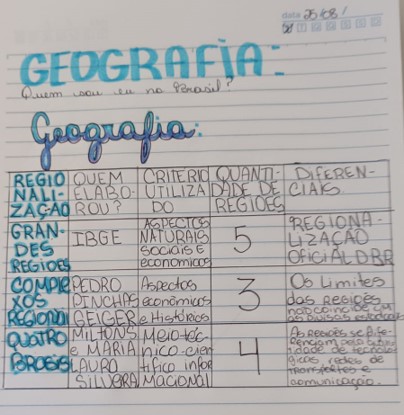 data 25/08/
GEOGRAFIA:
Quem sou eu no Brasil?
Geografia:
REGIO
NALI-
ZAÇAO
QUEM
ELABO-
ROU?
CRITERIO
UTILIZA
DO
QUANTI-
DADE DE
REGIOES
DIFEREN-
CIAIS.
GRAN-
DES
REGIOES
IBGE
ASPECTOS
NATURAIS
SOCIAIS E
economicos
5
REGIONA-
LIZAÇÃO
OFICIAL DBR
COMPLE
XOS
REGIONAI
PEDRO
PINCHAS
GEIGER
Aspectos
econômicos
e Históricos
3
Os Limites
das REGIÕES
não coincidem com
as divisas
QUATRO
BRASIS
MILTONS
e MARIA
LAURA
SILVEIRA
Meio téc-
nico-cien
tífico infor
macional
4
AS REGIÕES se dife-
renciam pela
tidade de tecnolo-
gicas redes de
transportes e
comunicação.